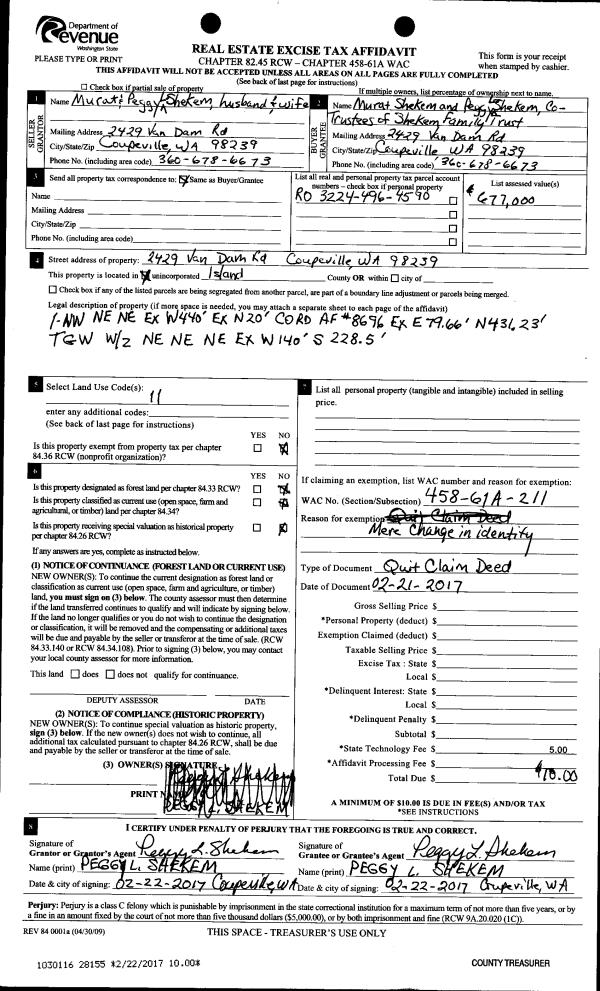 Department of
Revenue
Washington State
PLEASE TYPE OR PRINT
REAL ESTATE EXCISE TAX AFFIDAVIT
CHAPTER 82.45 RCW – CHAPTER 458-61A WAC
This form is your receipt
when stamped by cashier.
THIS AFFIDAVIT WILL NOT BE ACCEPTED UNLESS ALL AREAS ON ALL PAGES ARE FULLY COMPLETED
(See back of last page for instructions)
Check box if partial sale of property
If multiple owners, list percentage of ownership next to name.
1
SELLER
GRANTOR
Name Murat & Peggy L. Shekem, husband & wife
Mailing Address 2429 Van Dam Rd
City/State/Zip Coupeville, WA 98239
Phone No. (including area code) 360-678-6673
2
BUYER
GRANTEE
Name Murat Shekem and Peggy L. Shekem, Co-
Trustees of Shekem Family Trust
Mailing Address 2429 Van Dam Rd
City/State/Zip Coupeville WA 98239
Phone No. (including area code) 360-678-6673
3
Send all property tax correspondence to: Same as Buyer/Grantee
Name
Mailing Address
City/State/Zip
Phone No. (including area code)
List all real and personal property tax parcel account
numbers – check box if personal property
R0 3224-496-4590
List assessed value(s)
$ 677,000
4
Street address of property: 2429 Van Dam Rd Coupeville WA 98239
This property is located in unincorporated Island County OR within city of
Check box if any of the listed parcels are being segregated from another parcel, are part of a boundary line adjustment or parcels being merged.
Legal description of property (if more space is needed, you may attach a separate sheet to each page of the affidavit)
1-NW NE NE EX W440' EX N20' CO RD AF #8696 EX E 79.66' N431.23'
TGW W/2 NE NE NE EX W140' S 228.5'
5
Select Land Use Code(s):
11
enter any additional codes:
(See back of last page for instructions)
YES NO
Is this property exempt from property tax per chapter
84.36 RCW (nonprofit organization)?
6
YES NO
Is this property designated as forest land per chapter 84.33 RCW?
Is this property classified as current use (open space, farm and
agricultural, or timber) land per chapter 84.34?
Is this property receiving special valuation as historical property
per chapter 84.26 RCW?
If any answers are yes, complete as instructed below.
(1) NOTICE OF CONTINUANCE (FOREST LAND OR CURRENT USE)
NEW OWNER(S): To continue the current designation as forest land or
classification as current use (open space, farm and agriculture, or timber)
land, you must sign on (3) below. The county assessor must then determine
if the land transferred continues to qualify and will indicate by signing below.
If the land no longer qualifies or you do not wish to continue the designation
or classification, it will be removed and the compensating or additional taxes
will be due and payable by the seller or transferor at the time of sale. (RCW
84.33.140 or RCW 84.34.108). Prior to signing (3) below, you may contact
your local county assessor for more information.
This land does does not qualify for continuance.
DEPUTY ASSESSOR DATE
(2) NOTICE OF COMPLIANCE (HISTORIC PROPERTY)
NEW OWNER(S): To continue special valuation as historic property,
sign (3) below. If the new owner(s) does not wish to continue, all
additional tax calculated pursuant to chapter 84.26 RCW, shall be due
and payable by the seller or transferor at the time of sale.
(3) OWNER(S) SIGNATURE
PRINT NAME
PEGGY L. SHEKEM
7
List all personal property (tangible and intangible) included in selling
price.
If claiming an exemption, list WAC number and reason for exemption:
WAC No. (Section/Subsection) 458-61A-211
Reason for exemption Quit Claim Deed
Mere Change in identity
Type of Document Quit Claim Deed
Date of Document 02-21-2017
Gross Selling Price $
*Personal Property (deduct) $
Exemption Claimed (deduct) $
Taxable Selling Price $
Excise Tax : State $
Local $
*Delinquent Interest: State $
Local $
*Delinquent Penalty $
Subtotal $
*State Technology Fee $ 5.00
*Affidavit Processing Fee $
Total Due $ $10.00
A MINIMUM OF $10.00 IS DUE IN FEE(S) AND/OR TAX
*SEE INSTRUCTIONS
8
I CERTIFY UNDER PENALTY OF PERJURY THAT THE FOREGOING IS TRUE AND CORRECT.
Signature of
Grantor or Grantor's Agent Peggy L. Shekem
Name (print) PEGGY L. SHEKEM
Date & city of signing: 02-22-2017 Coupeville, WA
Signature of
Grantee or Grantee's Agent Peggy L Shekem
Name (print) PEGGY L. SHEKEM
Date & city of signing: 02-22-2017 Coupeville, WA
Perjury: Perjury is a class C felony which is punishable by imprisonment in the state correctional institution for a maximum term of not more than five years, or by
a fine in an amount fixed by the court of not more than five thousand dollars ($5,000.00), or by both imprisonment and fine (RCW 9A.20.020 (1C)).
REV 84 0001a (04/30/09)
THIS SPACE - TREASURER'S USE ONLY
COUNTY TREASURER
1030116 28155 *2/22/2017 10.00*